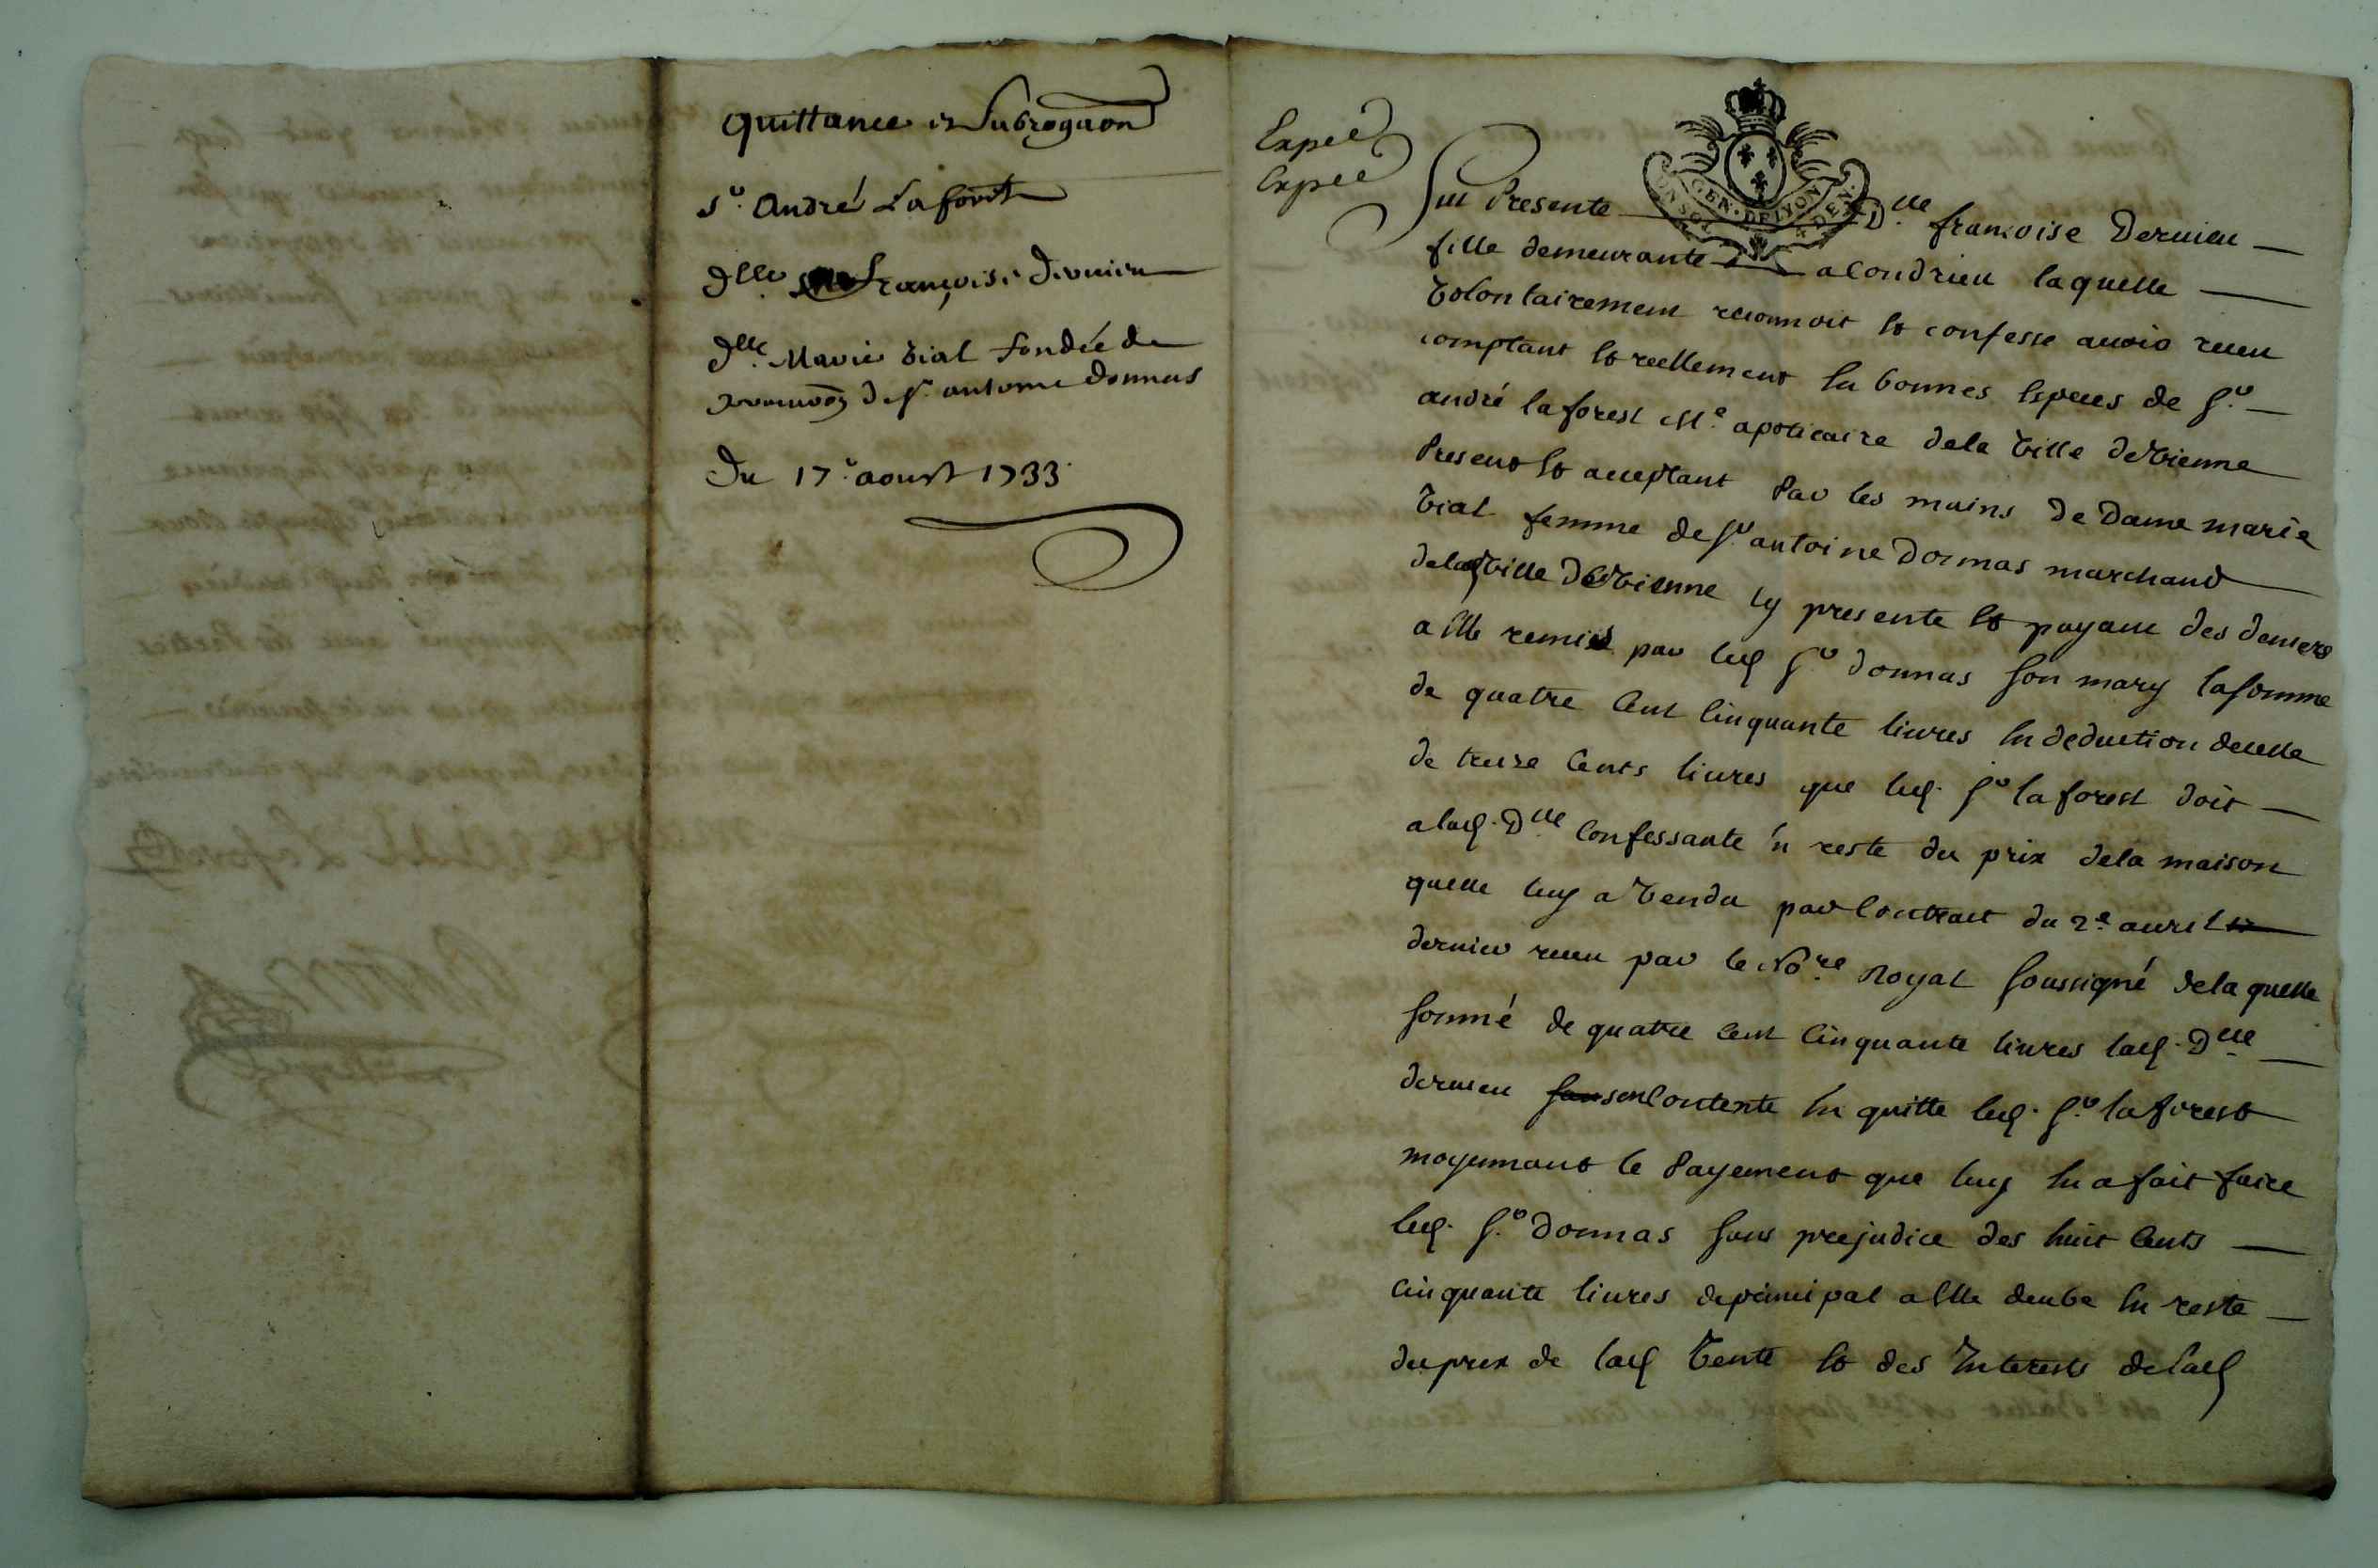 quittance et subrogaon
Sr. André Laforest
Dlle. françoise Dervieu
Dlle. Marie Vial fondée de
de Sr. antoine Donnas
Du 17e. aoust 1733.
Expée
Expée
GEN. DE LYON
Fut Presente Dlle françoise Dervieu
fille demeurante a Condrieu laquelle
volontairement reconnoit et confesse avoir receu
comptant et reellement en bonnes especes de Sr.
andré laforest Me. apoticaire dela ville de vienne
Present et acceptant Par les mains de Dame marie
vial femme de Sr. antoine Donnas marchand
delad ville de vienne icy presente et payant des deniers
a elle remis par led Sr. donnas son mary la somme
de quatre cent cinquante livres en deduction de celle
de treize cents livres que led. Sr. laforest doit
a lad. Dlle Confessante en reste du prix dela maison
quelle luy a vendu par Contract du 2e. avril
dernier receu par le Nore. Royal soussigné dela quelle
somme de quatre cent cinquante livres lad. Dlle
dervieu sen Contente en quitte led. Sr. laforest
moyennant le Payement que luy en a fait faire
led. Sr. donnas sans prejudice des huit Cents
cinquante livres de principal a elle deube en reste
du prix de lad vente et des Interests de lad